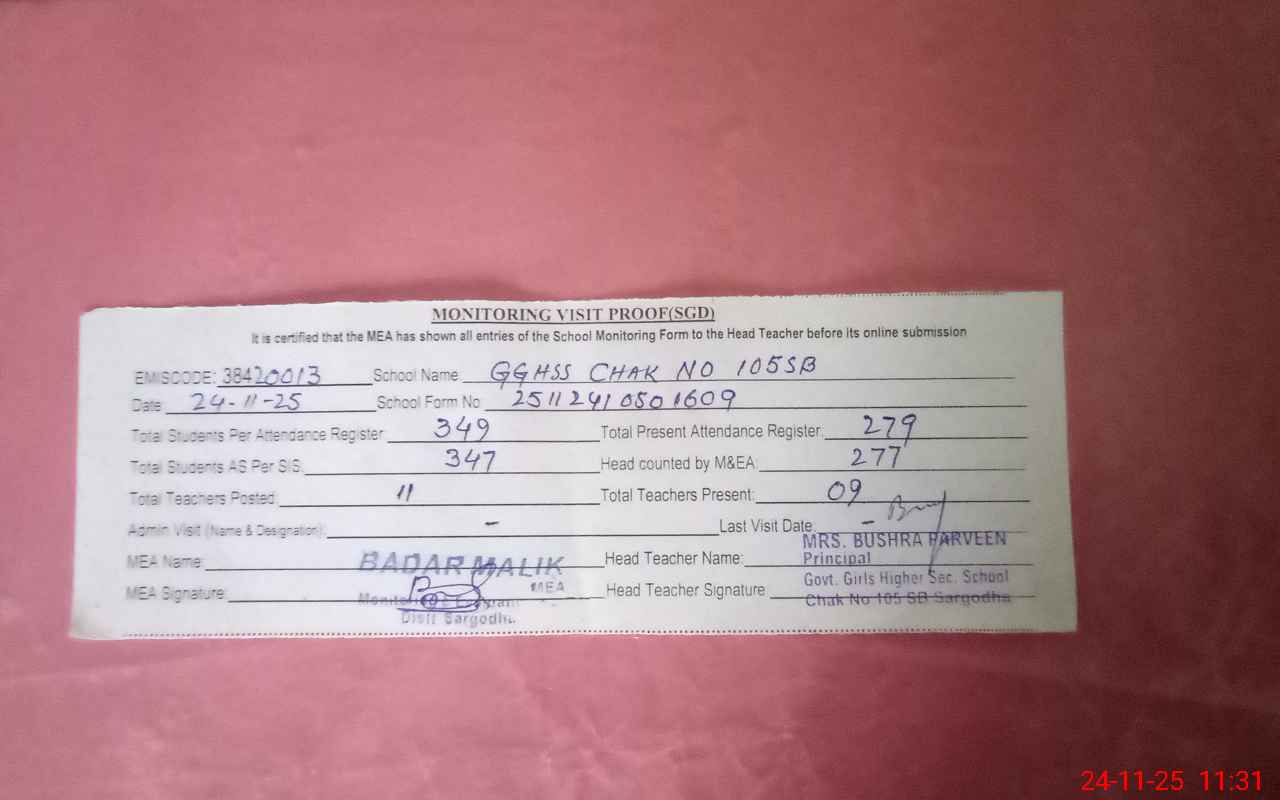 MONITORING VISIT PROOF(SGD)
It is certified that the MEA has shown all entries of the School Monitoring Form to the Head Teacher before its online submission
EMISCODE: 38420013 School Name GGHSS CHAK NO 105SB
Date 24-11-25 School Form No 25112410501609
Total Students Per Attendance Register 349 Total Present Attendance Register: 279
Total Students AS Per SIS 347 Head counted by M&EA: 277
Total Teachers Posted 11 Total Teachers Present: 09
Admin Visit (Name & Designation): - Last Visit Date: -
MRS. BUSHRA PARVEEN
MEA Name: BADAR MALIK Head Teacher Name: Principal
MEA
Govt. Girls Higher Sec. School
MEA Signature: Head Teacher Signature Chak No 105 SB Sargodha
Distt Sargodha.
24-11-25 11:31